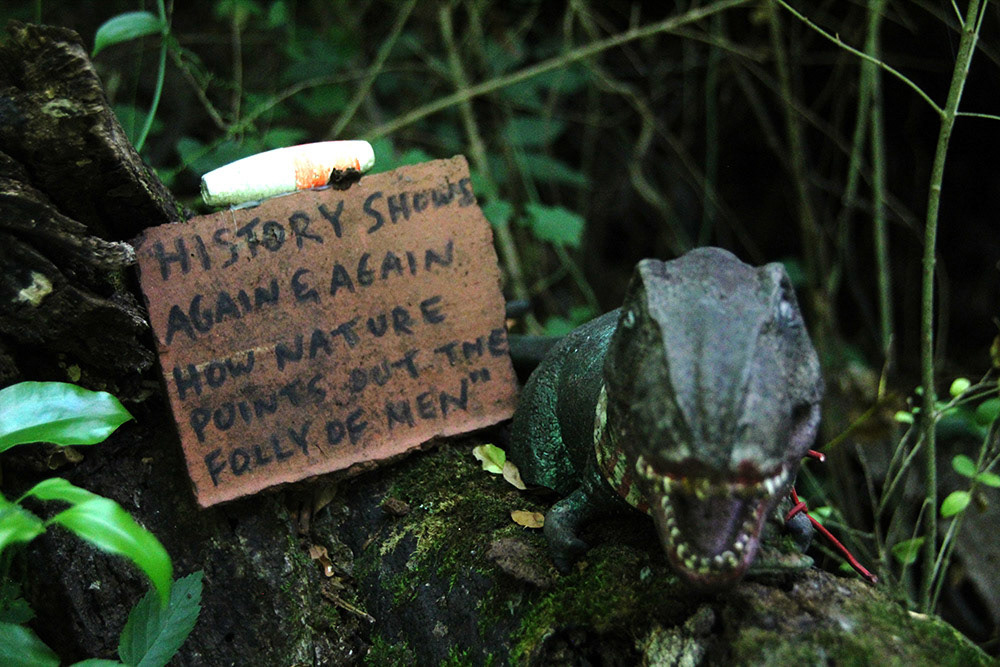 HISTORY SHOWS
AGAIN & AGAIN
HOW NATURE
POINTS OUT THE
FOLLY OF MEN"